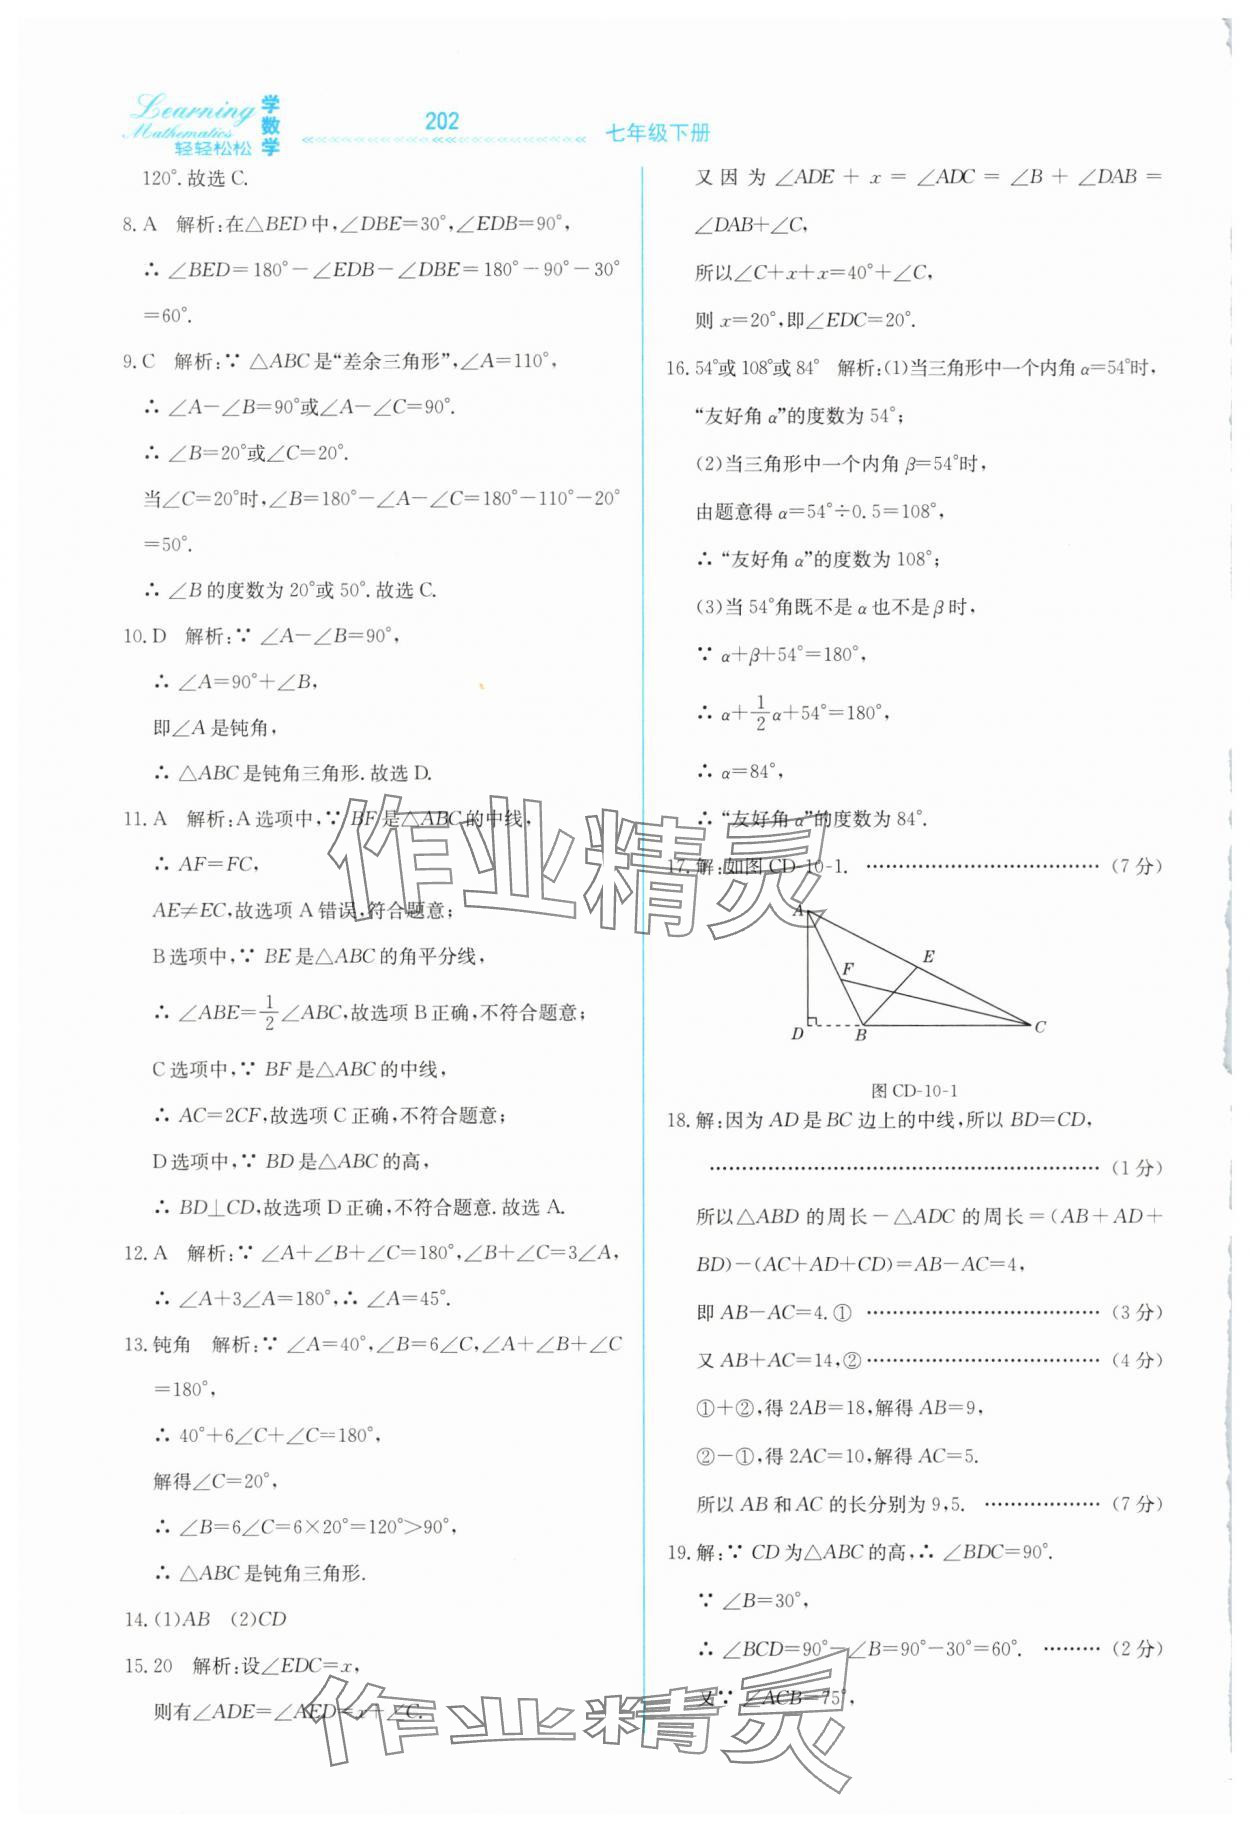 Learning
Mathematics
轻轻松松
学数学
202
七年级下册
120°.故选C.
8.A 解析:在△BED中,∠DBE=30°,∠EDB=90°,
∴ ∠BED=180°-∠EDB-∠DBE=180°-90°-30°
=60°.
9.C 解析:∵ △ABC是“差余三角形”,∠A=110°,
∴ ∠A-∠B=90°或∠A-∠C=90°.
∴ ∠B=20°或∠C=20°.
当∠C=20°时,∠B=180°-∠A-∠C=180°-110°-20°
=50°.
∴ ∠B的度数为20°或50°.故选C.
10.D 解析:∵ ∠A-∠B=90°,
∴ ∠A=90°+∠B,
即∠A是钝角,
∴ △ABC是钝角三角形.故选D.
11.A 解析:A选项中,∵ BF是△ABC的中线,
∴ AF=FC,
AE≠EC,故选项A错误,符合题意;
B选项中,∵ BE是△ABC的角平分线,
∴ ∠ABE=1/2∠ABC,故选项B正确,不符合题意;
C选项中,∵ BF是△ABC的中线,
∴ AC=2CF,故选项C正确,不符合题意;
D选项中,∵ BD是△ABC的高,
∴ BD⊥CD,故选项D正确,不符合题意.故选A.
12.A 解析:∵ ∠A+∠B+∠C=180°,∠B+∠C=3∠A,
∴ ∠A+3∠A=180°,∴ ∠A=45°.
13.钝角 解析:∵ ∠A=40°,∠B=6∠C,∠A+∠B+∠C
=180°,
∴ 40°+6∠C+∠C=180°,
解得∠C=20°,
∴ ∠B=6∠C=6×20°=120°>90°,
∴ △ABC是钝角三角形.
14.(1)AB (2)CD
15.20 解析:设∠EDC=x,
则有∠ADE=∠AED=x+∠C.
又因为∠ADE+x=∠ADC=∠B+∠DAB=
∠DAB+∠C,
所以∠C+x+x=40°+∠C,
则x=20°,即∠EDC=20°.
16.54°或108°或84° 解析:(1)当三角形中一个内角α=54°时,
“友好角α”的度数为54°;
(2)当三角形中一个内角β=54°时,
由题意得α=54°÷0.5=108°,
∴ “友好角α”的度数为108°;
(3)当54°角既不是α也不是β时,
∵ α+β+54°=180°,
∴ α+1/2α+54°=180°,
∴ α=84°,
∴ “友好角α”的度数为84°.
17.解:如图CD-10-1. ……………………………(7分)
A
E
F
D
B
C
图CD-10-1
18.解:因为AD是BC边上的中线,所以BD=CD,
………………………………………………(1分)
所以△ABD的周长-△ADC的周长=(AB+AD+
BD)-(AC+AD+CD)=AB-AC=4,
即AB-AC=4.① ……………………………(3分)
又AB+AC=14,②……………………………(4分)
①+②,得2AB=18,解得AB=9,
②-①,得2AC=10,解得AC=5.
所以AB和AC的长分别为9,5. ………………(7分)
19.解:∵ CD为△ABC的高,∴ ∠BDC=90°.
∵ ∠B=30°,
∴ ∠BCD=90°-∠B=90°-30°=60°. ………(2分)
又∵ ∠ACB=75°,
作业精灵
作业精灵